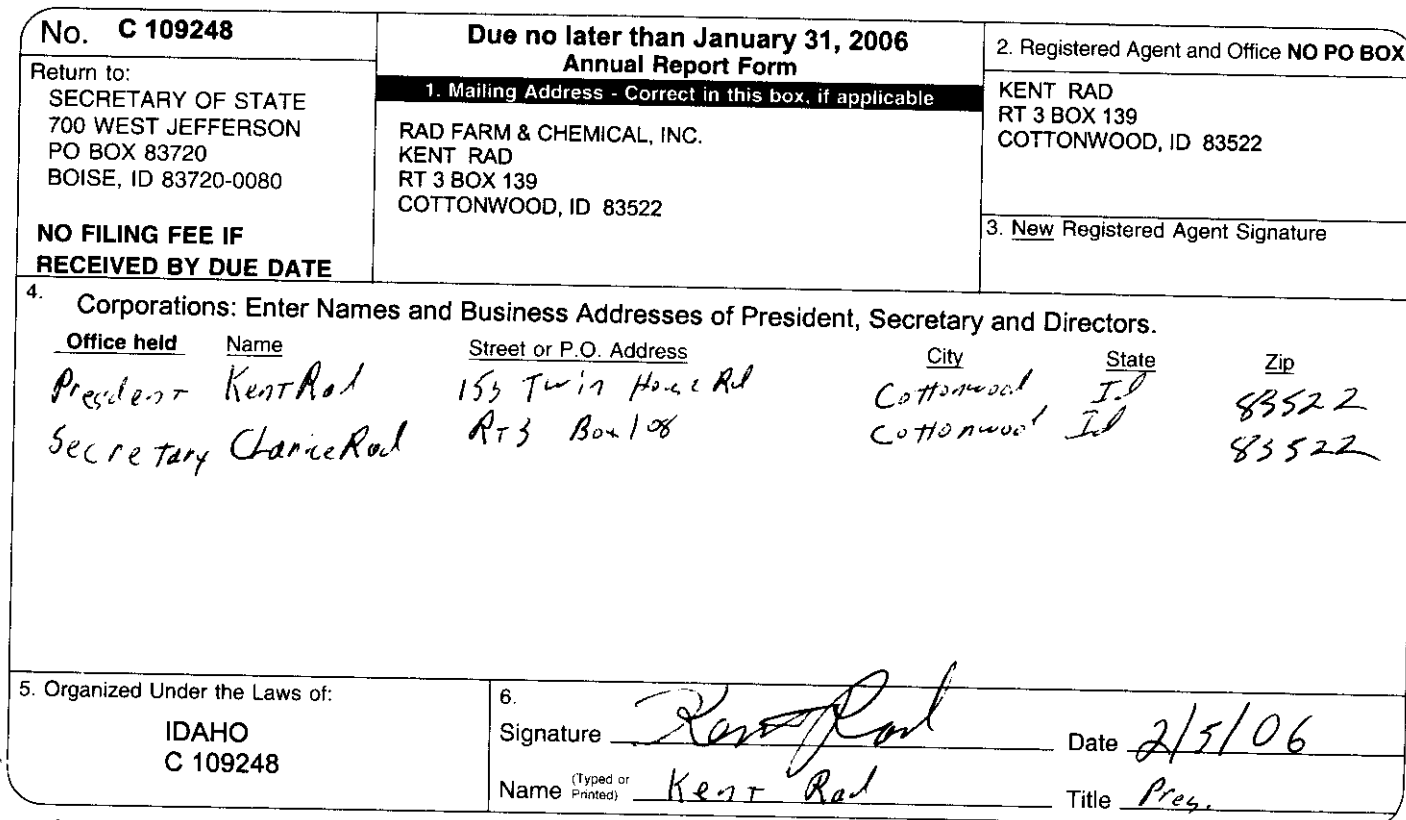 No. C 109248
Return to:
SECRETARY OF STATE
700 WEST JEFFERSON
PO BOX 83720
BOISE, ID 83720-0080
NO FILING FEE IF
RECEIVED BY DUE DATE
Due no later than January 31, 2006
Annual Report Form
1. Mailing Address - Correct in this box, if applicable
RAD FARM & CHEMICAL, INC.
KENT RAD
RT 3 BOX 139
COTTONWOOD, ID 83522
2. Registered Agent and Office NO PO BOX
KENT RAD
RT 3 BOX 139
COTTONWOOD, ID 83522
3. New Registered Agent Signature
4. Corporations: Enter Names and Business Addresses of President, Secretary and Directors.
Office held Name Street or P.O. Address City State Zip
President Kent Rad 153 Twin House Rd Cottonwood Id 83522
Secretary Rad RT 3 Box 108 Cottonwood Id 83522
5. Organized Under the Laws of:
IDAHO
C 109248
6.
Signature Kent Rad Date 2/5/06
Name (Typed or Printed) Kent Rad Title Pres.